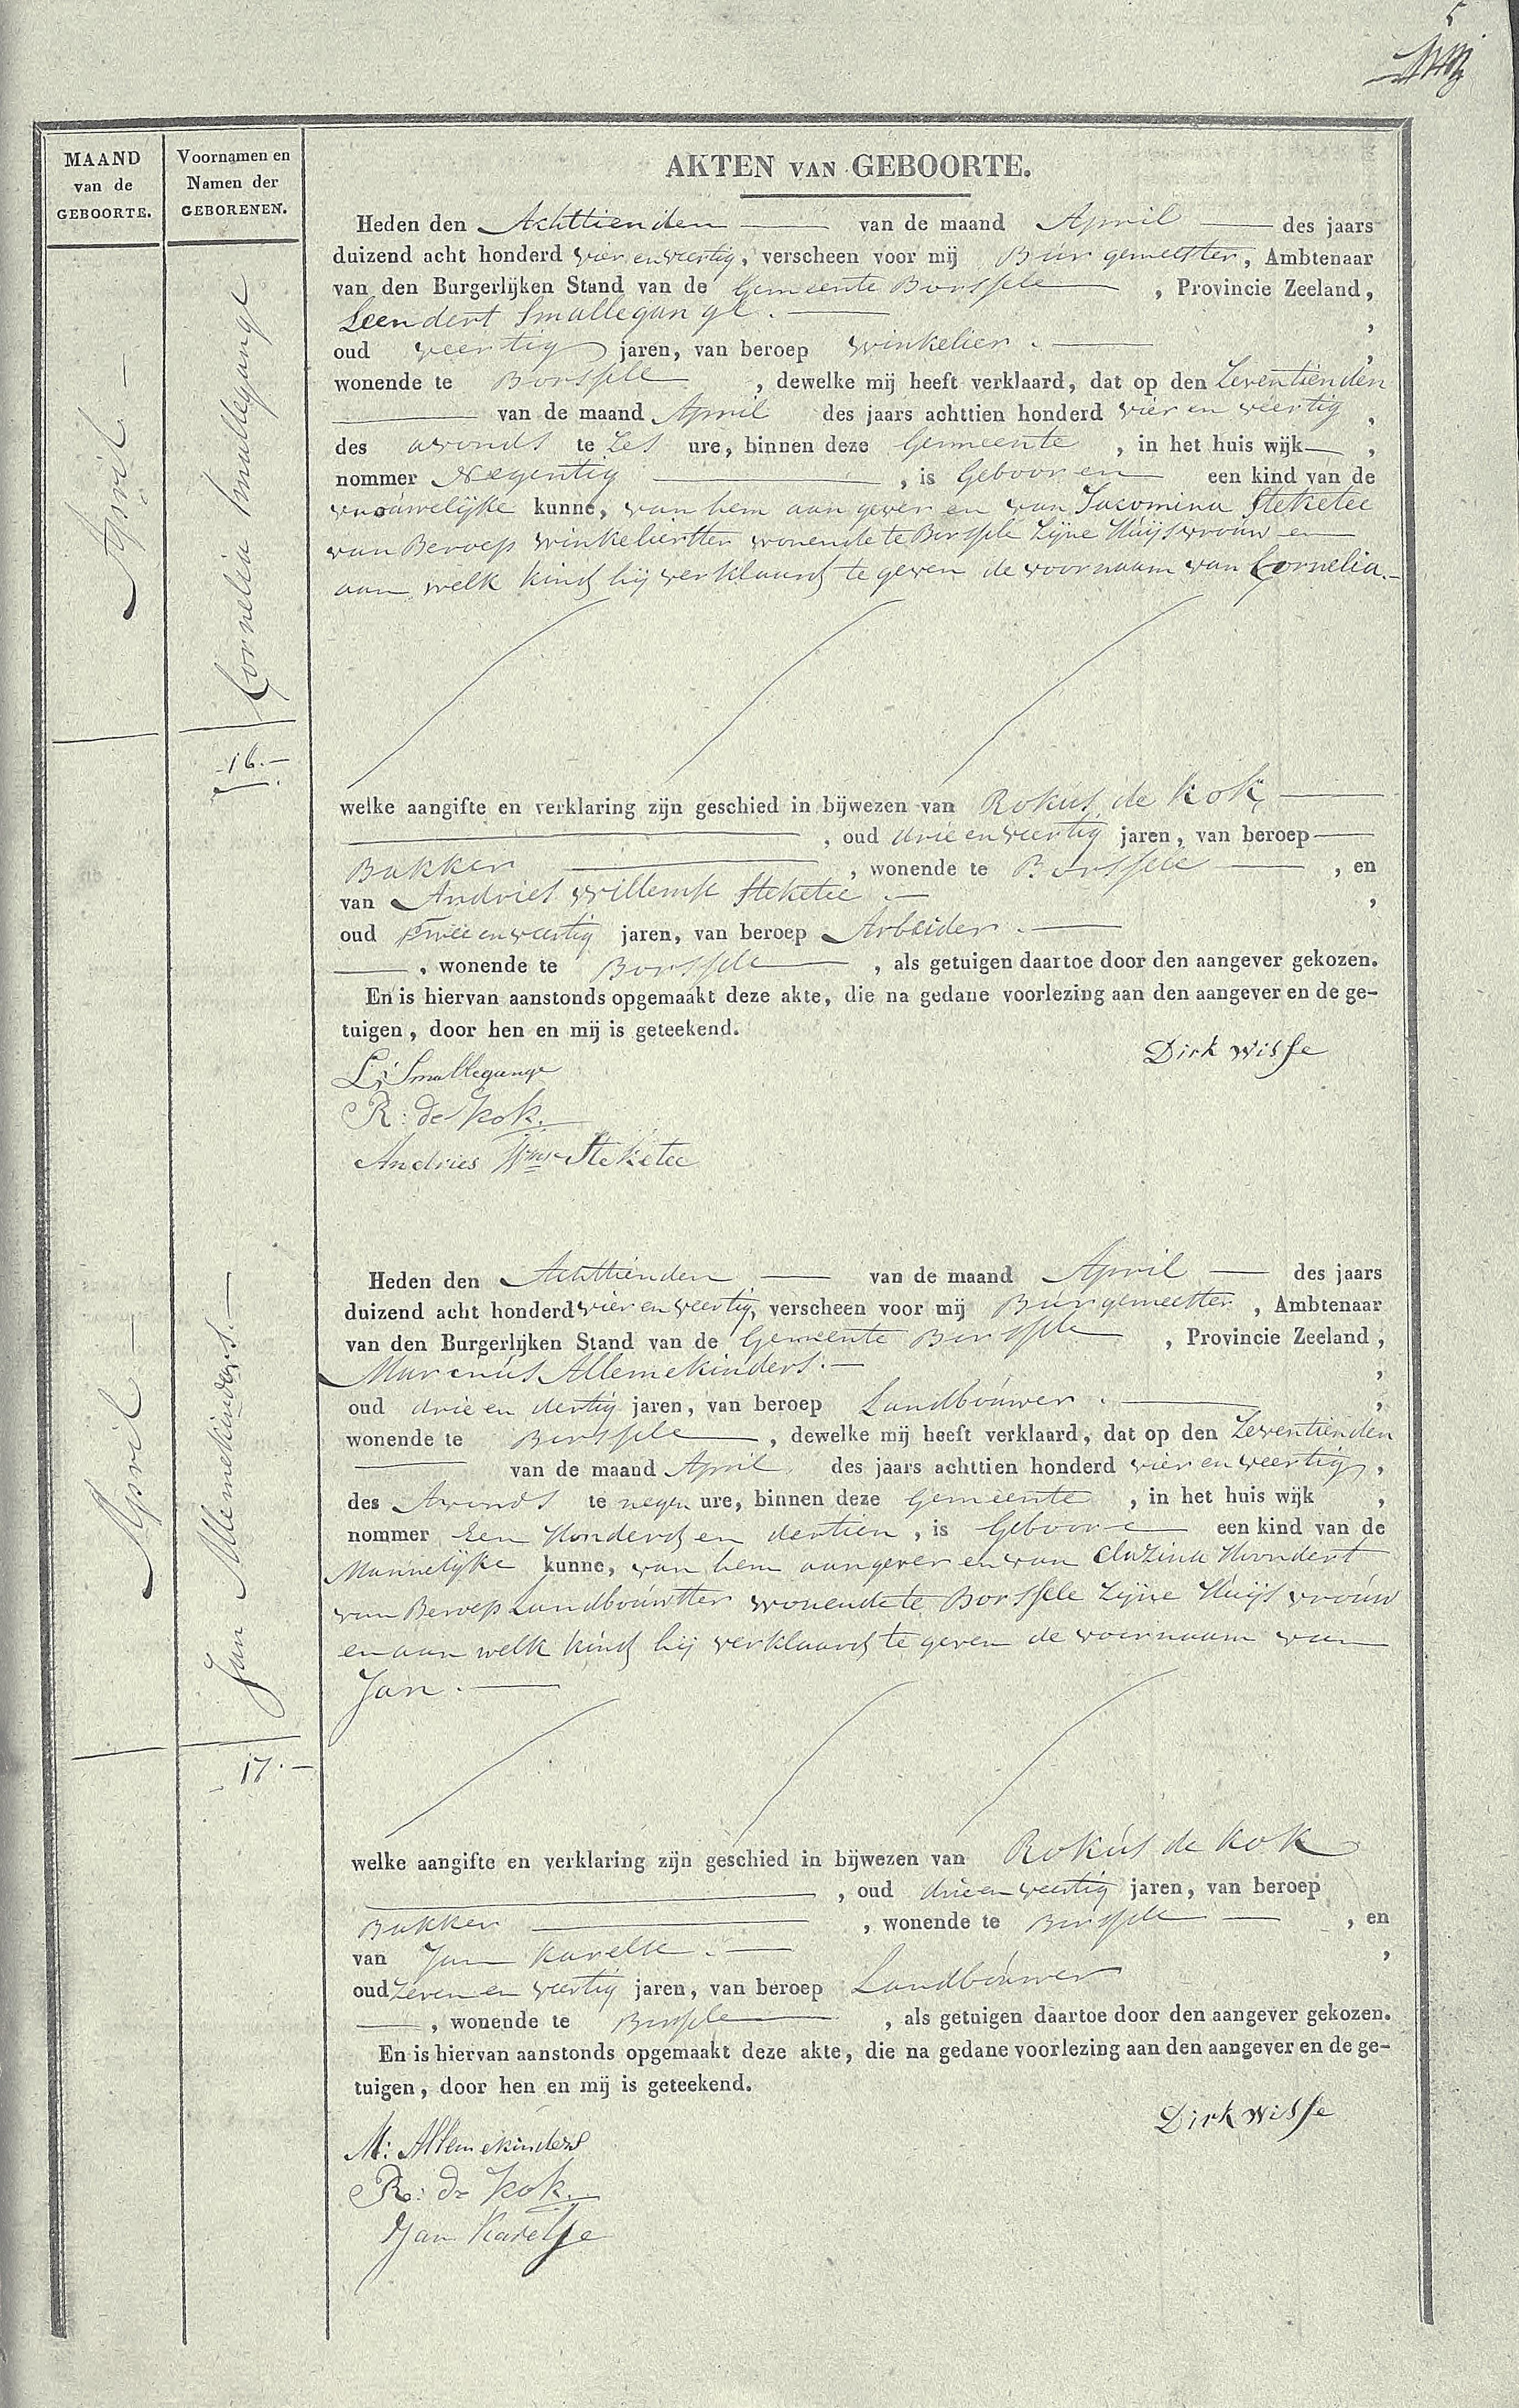 5
MAAND
van de
GEBOORTE.
Voornamen en
Namen der
GEBORENEN.
AKTEN VAN GEBOORTE.
April
Cornelia Smallegange
16.
Heden den Achttienden van de maand April des jaars
duizend acht honderd vier en veertig, verscheen voor mij Burgemeester, Ambtenaar
van den Burgerlijken Stand van de Gemeente Borssele, Provincie Zeeland,
Leendert Smallegange.,
oud veertig jaren, van beroep winkelier.,
wonende te Borssele, dewelke mij heeft verklaard, dat op den Zeventienden
van de maand April des jaars achttien honderd vier en veertig,
des avonds te Zes ure, binnen deze Gemeente, in het huis wijk,
nommer Negentig, is Gebooren een kind van de
vrouwelijke kunne, van hem aangever en van Jacomina Steketee
van Beroep winkelierster wonende te Borssele Zijne Huijsvrouw en
aan welk kind hij verklaard te geven de voornaam van Cornelia.
welke aangifte en verklaring zijn geschied in bijwezen van Rokus de Kok
, oud drie en veertig jaren, van beroep
Bakker, wonende te Borssele, en
van Andries Willemse Steketee.,
oud Twee en veertig jaren, van beroep Arbeider.
, wonende te Borssele, als getuigen daartoe door den aangever gekozen.
En is hiervan aanstonds opgemaakt deze akte, die na gedane voorlezing aan den aangever en de ge-
tuigen, door hen en mij is geteekend.
Dirk Wisse
L: Smallegange
R: de Kok.
Andries Wmse Steketee
April
Jan Allemekinders.
17.
Heden den Achttienden van de maand April des jaars
duizend acht honderd vier en veertig, verscheen voor mij Burgemeester, Ambtenaar
van den Burgerlijken Stand van de Gemeente Borssele, Provincie Zeeland,
Marinus Allemekinders.,
oud drie en dertig jaren, van beroep Landbouwer.,
wonende te Borssele, dewelke mij heeft verklaard, dat op den Zeventienden
van de maand April des jaars achttien honderd vier en veertig,
des Avonds te negen ure, binnen deze Gemeente, in het huis wijk,
nommer Een Honderd en dertien, is Geboore een kind van de
Mannelijke kunne, van hem aangever en van Clazina Hoondert
van Beroep Landbouwster wonende te Borssele Zijne Huijsvrouw
en aan welk kind hij verklaard te geven de voornaam van
Jan.
welke aangifte en verklaring zijn geschied in bijwezen van Rokus de Kok
, oud drie en veertig jaren, van beroep
Bakker, wonende te Borssele, en
van Jan Karelse.,
oud Zeven en veertig jaren, van beroep Landbouwer
, wonende te Borssele, als getuigen daartoe door den aangever gekozen.
En is hiervan aanstonds opgemaakt deze akte, die na gedane voorlezing aan den aangever en de ge-
tuigen, door hen en mij is geteekend.
Dirk Wisse
M: Allemekinders
R: de Kok.
Jan Karelse